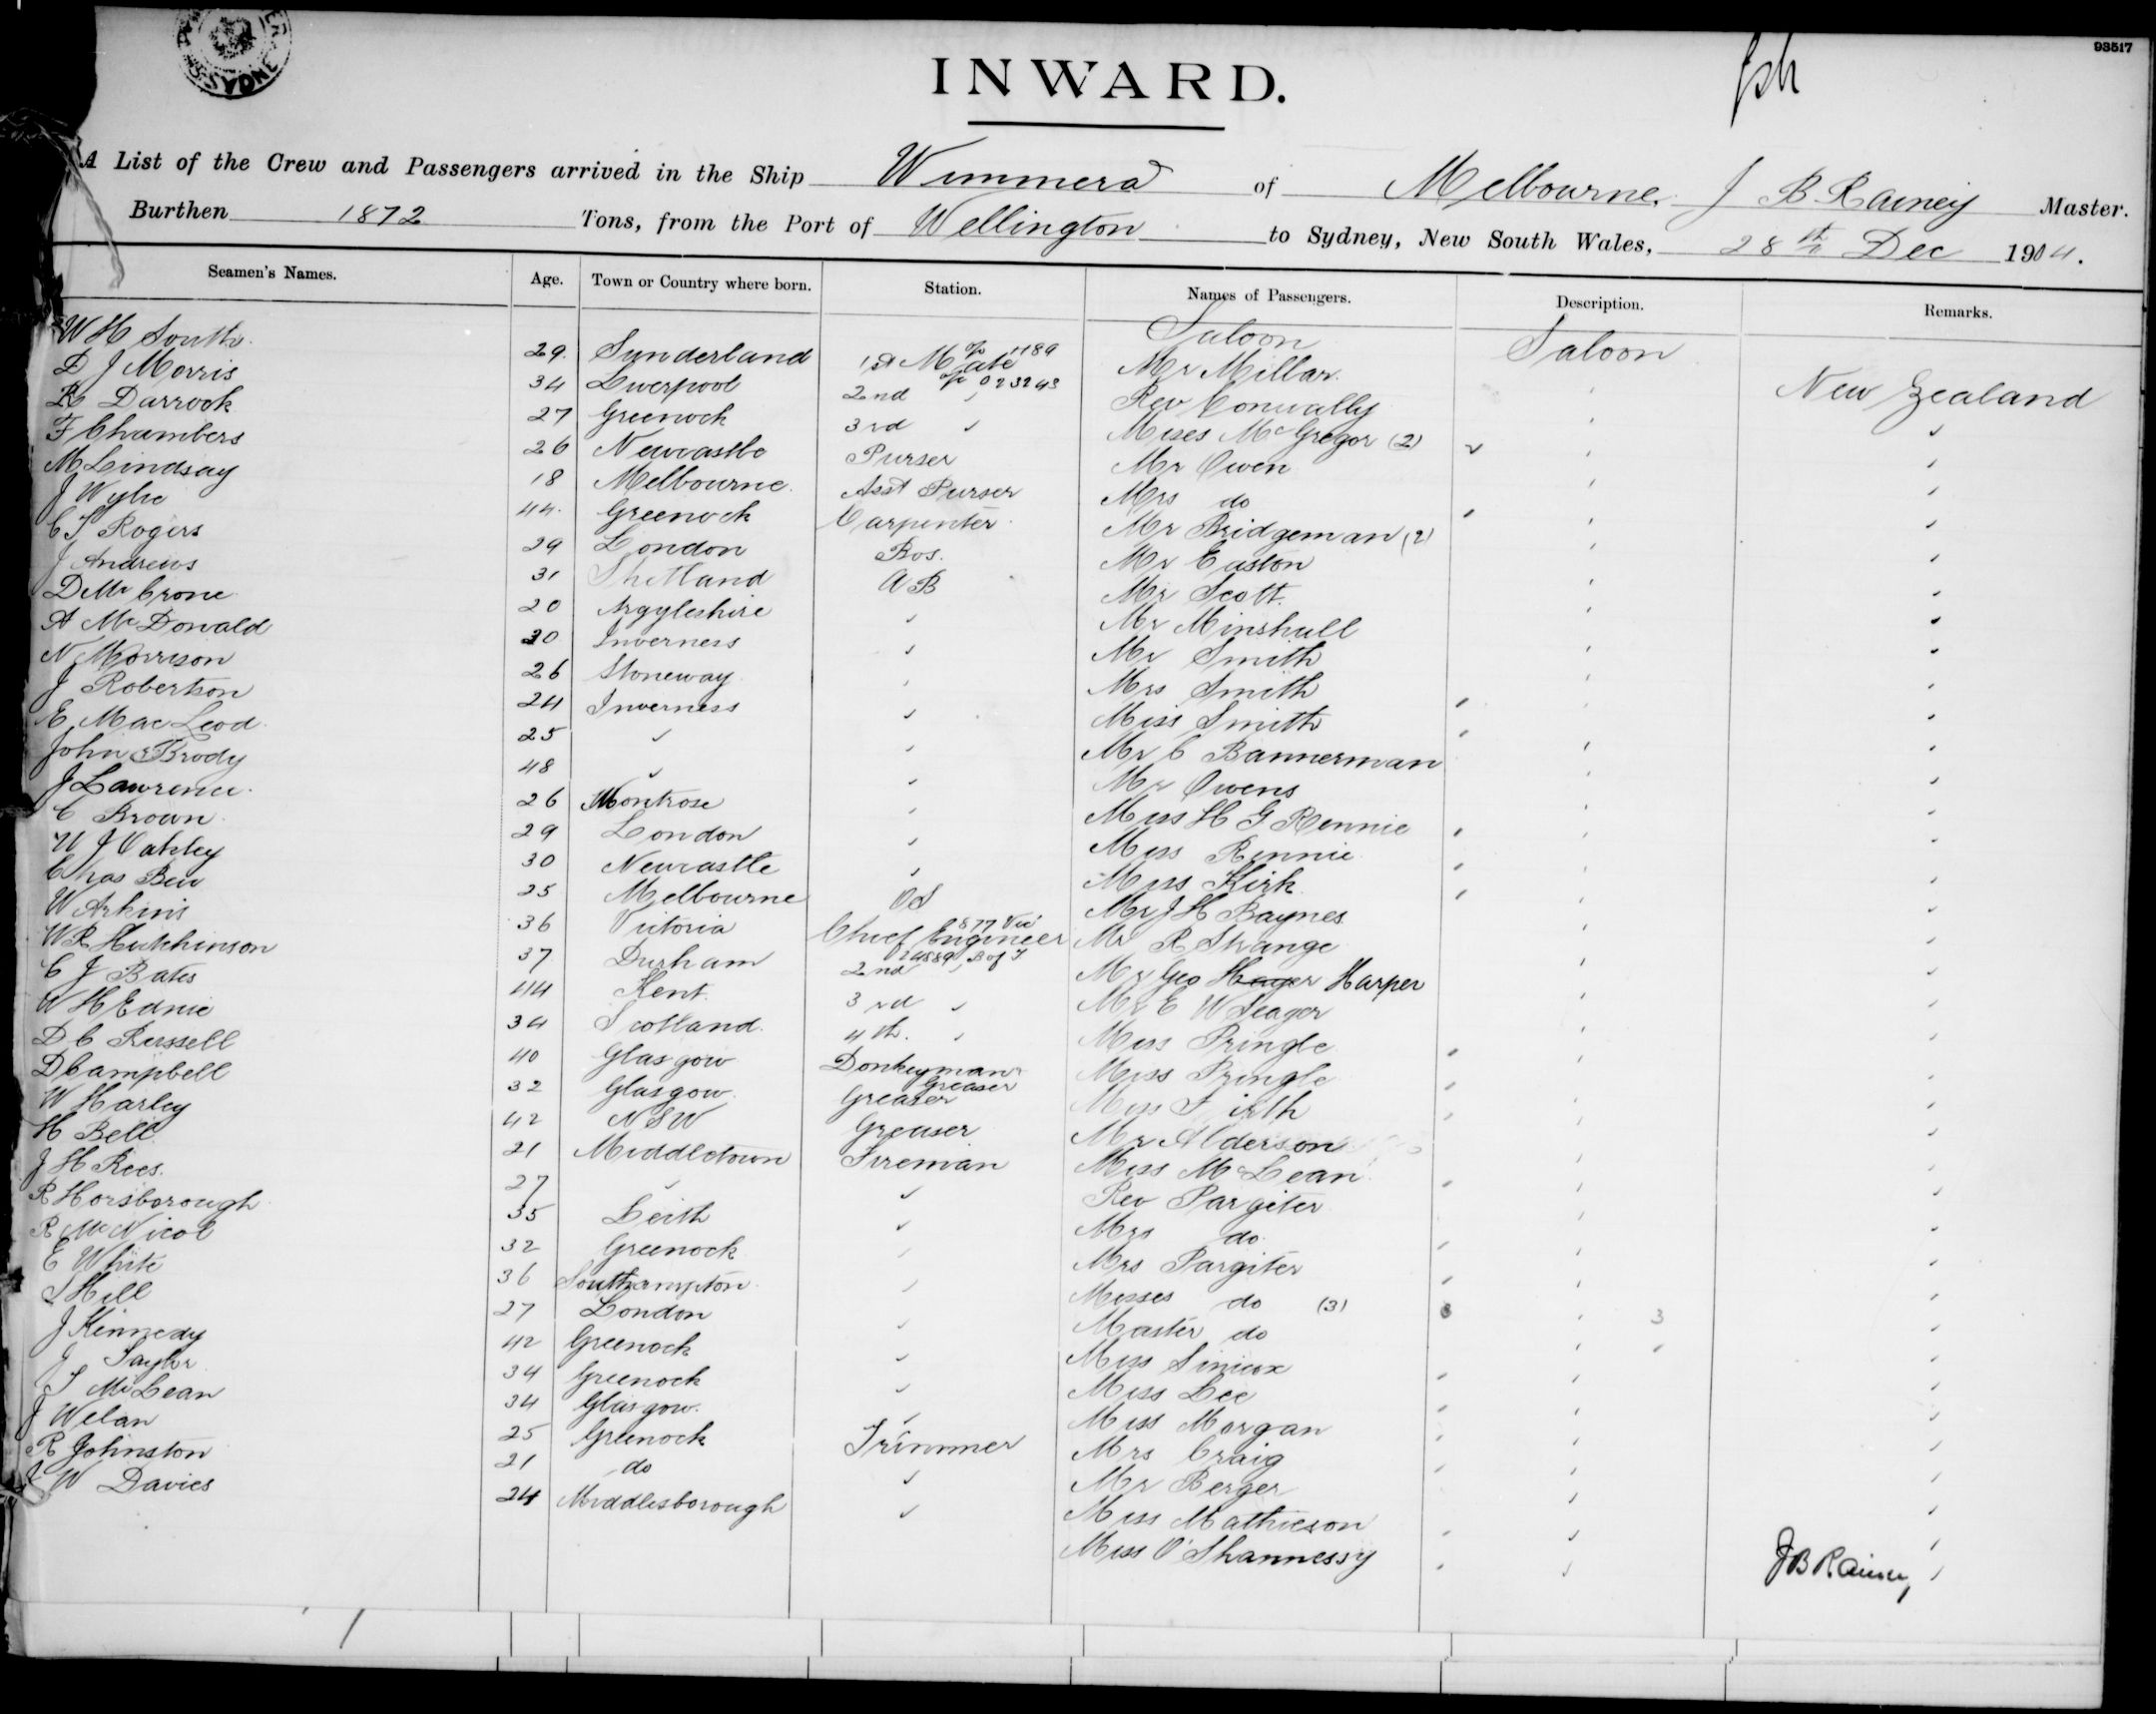 93517
INWARD.
A List of the Crew and Passengers arrived in the Ship Wimmera of Melbourne. J B Rainey Master.
Burthen 1872 Tons, from the Port of Wellington to Sydney, New South Wales, 28th Dec 1904.
Seamen's Names. Age. Town or Country where born. Station. Names of Passengers. Description. Remarks.
Saloon Saloon
W H South 29. Sunderland 1st Mate 1189 Mr Millar New Zealand
D J Morris 34 Liverpool 2nd 023243 Rev Conwally
R Darrock 27 Greenock 3rd Misses McGregor (2)
F Chambers 26 Newcastle Purser Mr Owen
M Lindsay 18 Melbourne Asst Purser Mrs do
J Wylie 44 Greenock Carpenter Mr Bridgeman (2)
C S Rogers 29 London Bos. Mr Easton
J Andrews 31 Shetland AB Mr Scott
D McCrone 20 Argyleshire Mr Minshull
A McDonald 30 Inverness Mr Smith
N Morrison 26 Stoneway Mrs Smith
J Robertson 24 Inverness Miss Smith
E MacLeod 25 Mr C Bannerman
John Brody 48 Mr Owens
J Lawrence 26 Montrose Miss H G Rennie
C Brown 29 London Miss Rennie
W J Oakley 30 Newcastle Miss Kirk
Chas Bew 25 Melbourne OS Mr J H Baynes
W Arkins 36 Victoria Chief Engineer 877 Vic Mr R Strange
W R Hutchinson 37 Durham 2nd 29889 B of T Mr Geo Hager Harper
C J Bates 44 Kent 3rd Mr E W Seager
W H Ednie 34 Scotland 4th Miss Pringle
D C Russell 40 Glasgow Donkeyman Greaser Miss Pringle
D Campbell 32 Glasgow Greaser Miss Firth
W Harley 42 NSW Greaser Mr Alderson
H Bell 21 Middletown Fireman Miss McLean
J H Rees 27 Rev Pargiter
R Horsborough 35 Leith Mrs do
R McNicol 32 Greenock Mrs Pargiter
E White 36 Southampton Misses do (3) 3
S Hill 27 London Master do
J Kennedy 42 Greenock Miss
J Taylor 34 Greenock Miss Lee
J S McLean 34 Glasgow Miss Morgan
J Welan 25 Greenock Trimmer Mrs Craig
R Johnston 21 do Mr Berger
J W Davies 24 Middlesborough Miss Mathieson
Miss O'Shannessy
J B Rainey